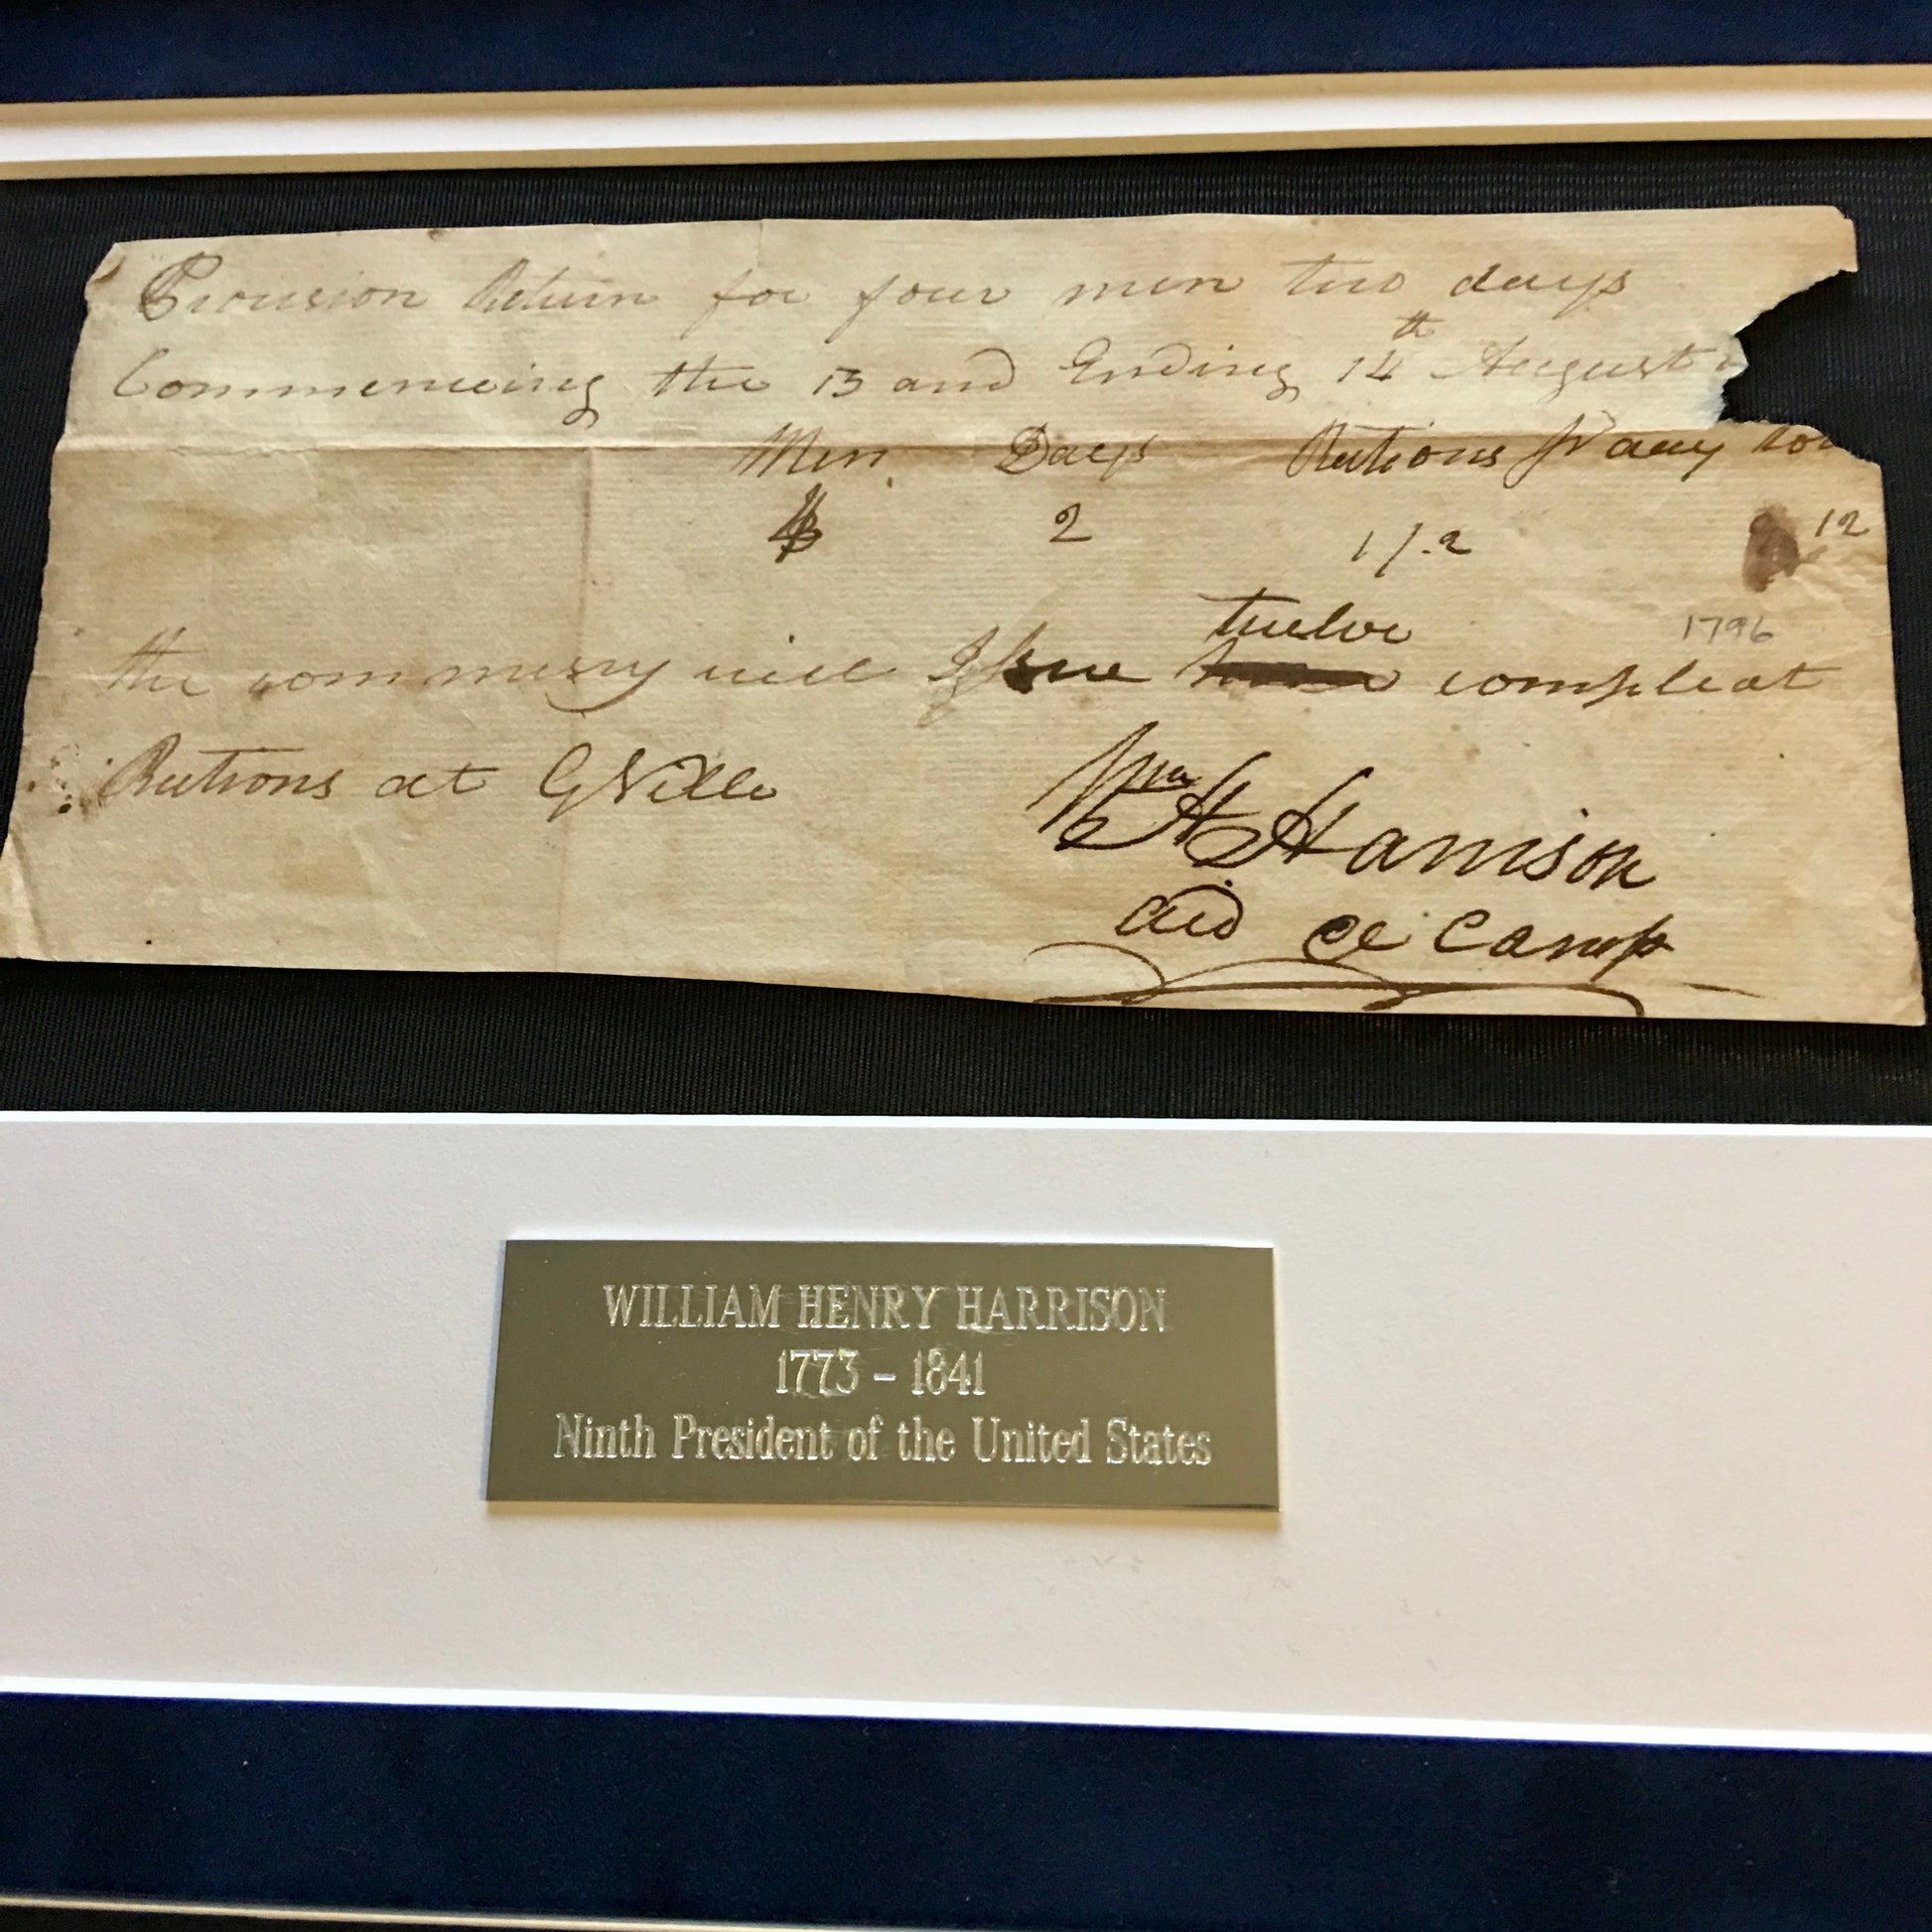 Provision Return for four men two days
Commencing the 13 and Ending 14th August
Men Days Rations pr day
4 2 1 1/2 12
1796
the commissry will Issue twelve compleat
Rations at GVille
Wm H Harrison
aid de Camp
WILLIAM HENRY HARRISON
1773 – 1841
Ninth President of the United States